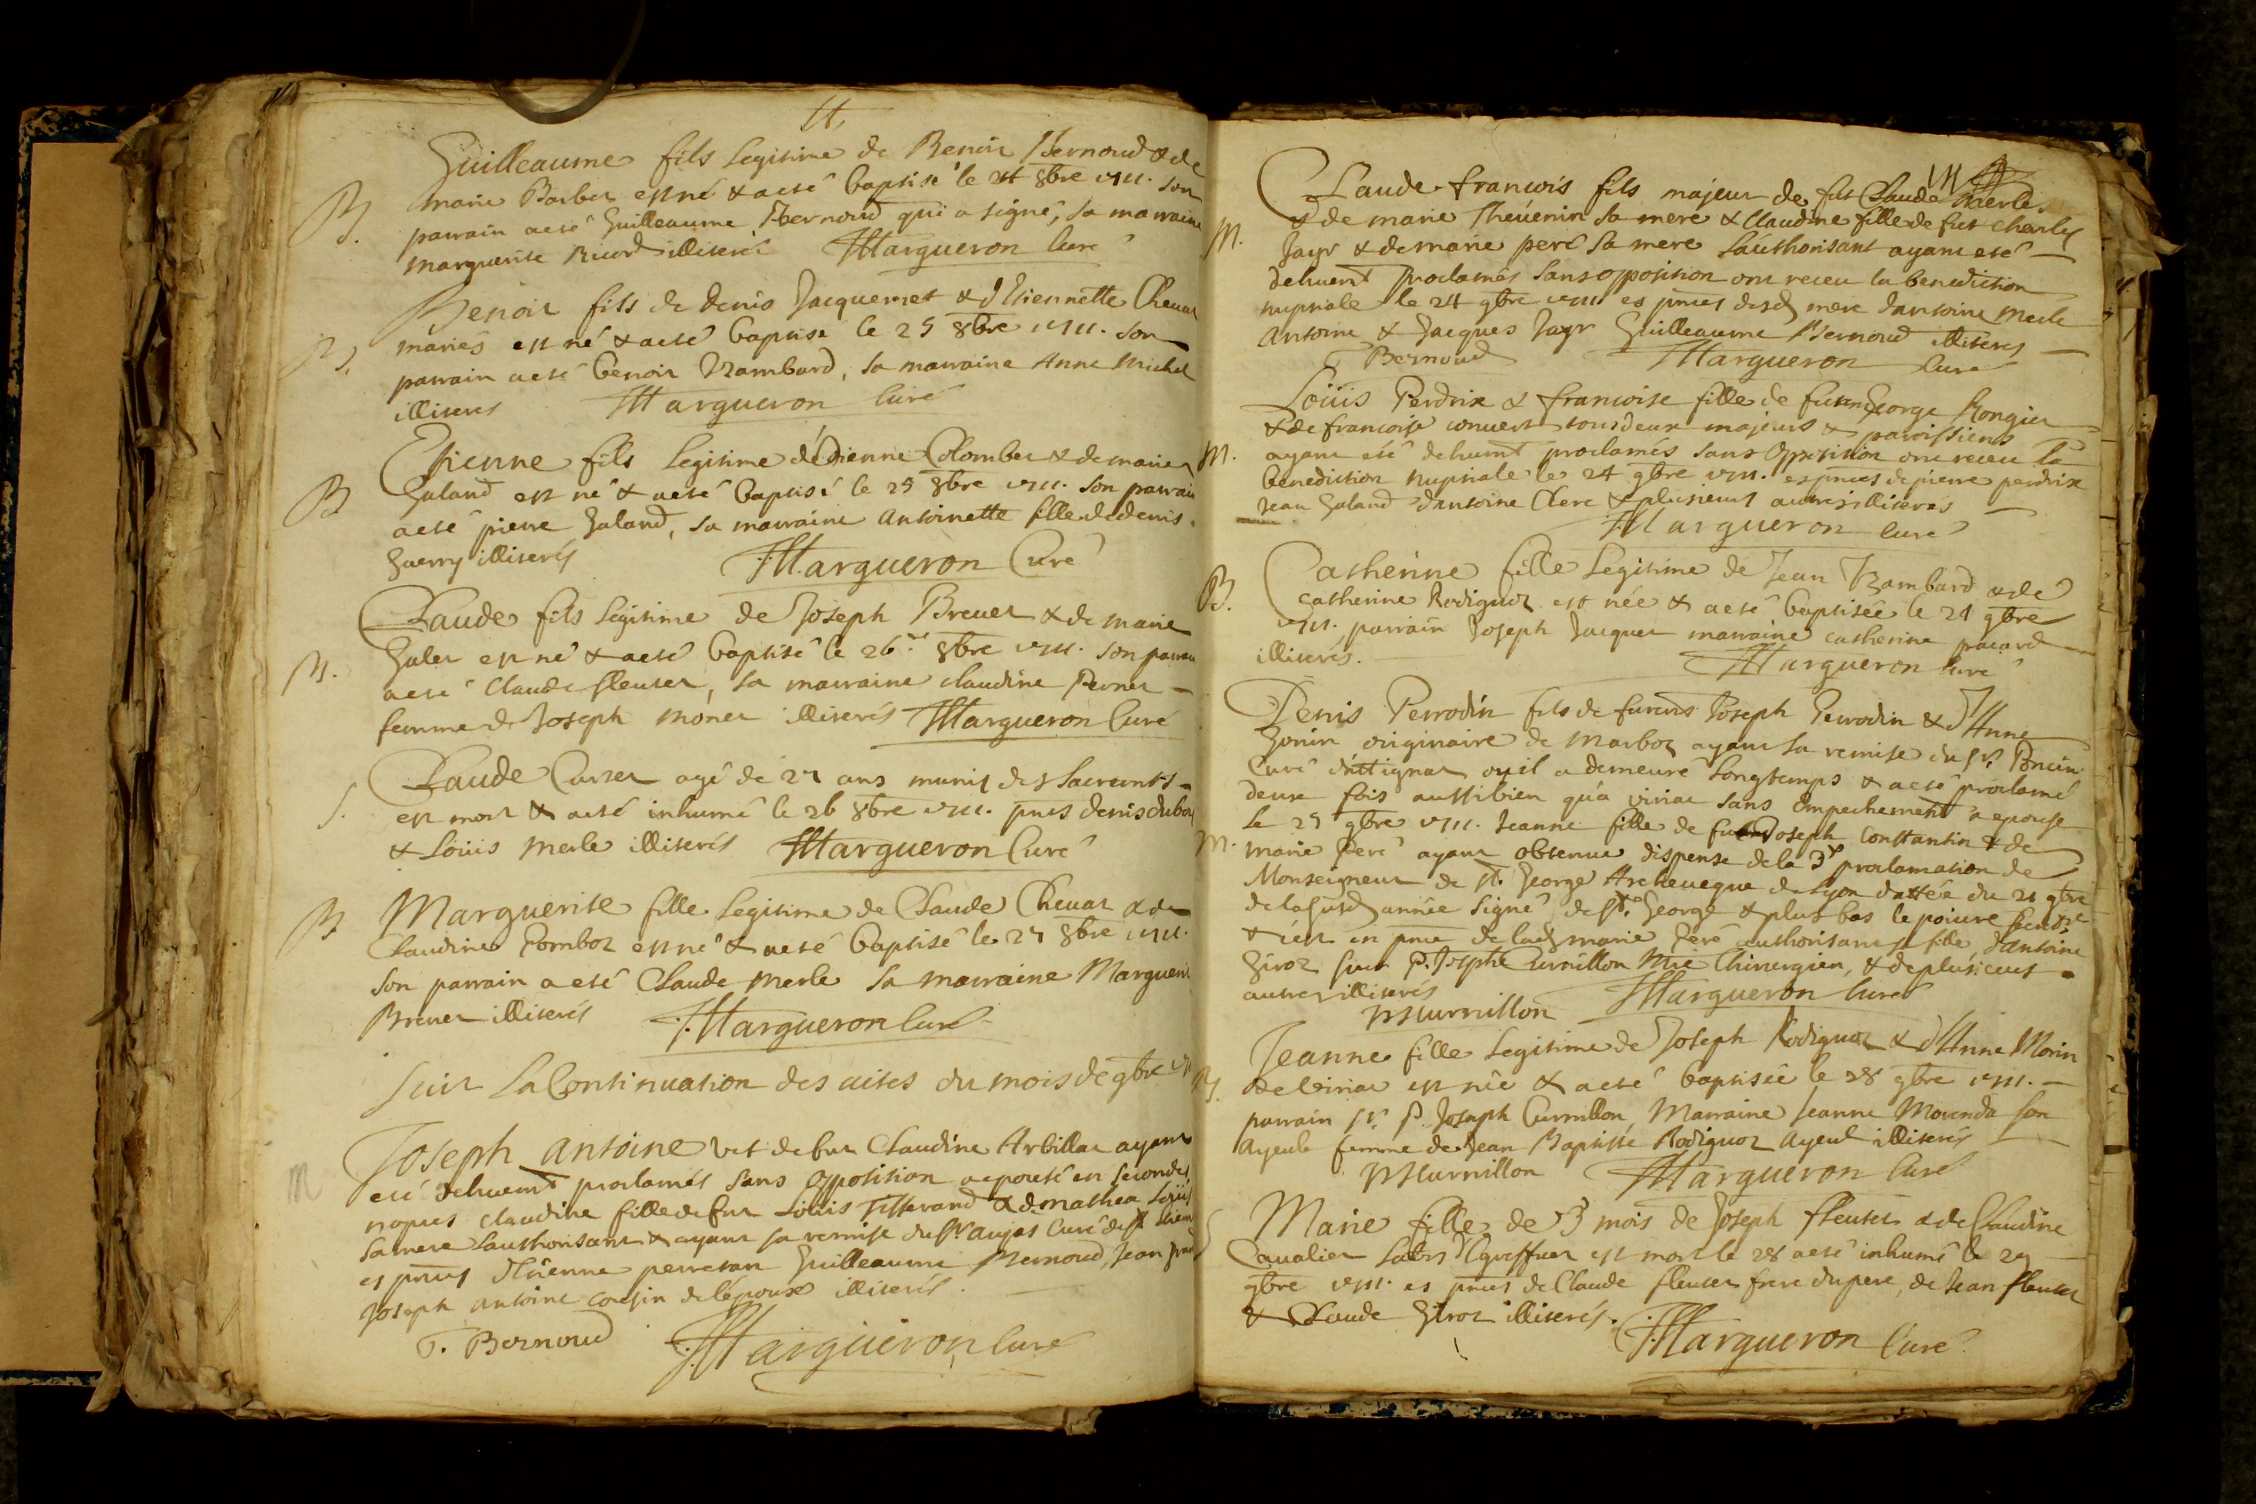 Guilleaume fils legitime de Benoit Bernoud & de
B. marie Barbet est né & a eté baptisé le 24 8bre son
parrain a eté Guilleaume Bernoud qui a signé, sa marraine
marguerite Ricord illiterés Margueron Curé
Benoit fils de denis Jacquemet & d'Etiennette Chevat
B. mariés est né & a eté baptisé le 25 8bre son
parrain a eté benoit Rambard, sa marraine Anne Michel
illiterés Margueron Curé
Etienne fils legitime d'Etienne Colombet & de marie
B Galand est né & a eté baptisé le 25 8bre son parrain
a eté pierre Galand, sa marraine antoinette fille de denis
Guerry illiterés Margueron Curé
Claude fils legitime de Joseph Brevet & de marie
B. Galet est né & a eté baptisé le 26 8bre son parrain
a eté Claude fleutet, sa marraine claudine Pernet
femme de Joseph monet illiterés Margueron Curé
Claude Curtet agé de 27 ans munis des Sacremts
S. est mort & a eté inhumé le 26 8bre pnts denis dubois
& Loüis merle illiterés Margueron Curé
B Marguerite fille legitime de Claude Chevat & de
Claudine Pombot est né & a eté baptisé le 27 8bre
son parrain a eté Claude merle sa marraine Marguerite
Brevet illiterés Margueron Curé
Suit La Continuation des actes du mois de 9bre
Joseph antoine vef de fut Claudine Arbillat ayant
M eté dehuemt proclamés sans opposition a epousé en secondes
nopces claudine fille de fut Loüis Tisserand & de mathea
sa mere l'authorisant & ayant la remise du Sr aujas Curé de St
es pntes d'Etienne perretan Guilleaume Bernoud, Jean
Joseph antoine cousin de l'époux illiterés.
G. Bernoud Margueron Curé
Claude francois fils majeur de fut Claude Merle
M. & de marie Thévenin sa mere & Claudine fille de fut charles
Jayr & de marie peré sa mere l'authorisant ayant eté
dehuemt proclamés sans opposition ont receu la benediction
nuptiale le 24 9bre es pntes desd mere d'antoine merle
antoine & Jacques Jayr Guilleaume Bernoud illiterés
G Bernoud Margueron Curé
Loüis Perdrix & francoise fille de George Rongier
& de francoise convert tous deux majeurs & paroissiens
M. ayant eté dehuemt proclamés sans opposition ont receu la
benediction nuptiale le 24 9bre es pntes de pierre perdrix
Jean Galand d'antoine Clerc & plusieurs autres illiterés
Margueron Curé
Catherine fille legitime de Jean Rambard & de
B. catherine Rodiguet est née & a eté baptisée le 24 9bre
parrain Joseph Jacquet marraine catherine pacard
illiterés. Margueron Curé
Denis Perrodin fils de Joseph Perrodin & d'Anne
Gonin originaire de marboz ayant la remise du Sr Poncin
Curé d'Attignat ou il a demeuré longtemps & a eté proclamé
deux fois aussi bien qu'a viriat sans Empechement a epousé
le 25 9bre Jeanne fille de Joseph Constantin & de
M. marie Peré ayant obtenue dispense de la 3e proclamation de
Monseigneur de St. George Archeveque de Lyon dattée du 21 9bre
de la susd année signé de St. George & plus bas le poivre
& c'est en pnce de lad marie Peré authorisant sa fille d'antoine
Giroz Sieur P. Joseph Curnillon Mre Chirurgien, & de plusieurs
autres illiterés Margueron Curé
Curnillon
Jeanne fille legitime de Joseph Rodiguet & d'Anne Morin
B. de viriat est née & a eté baptisée le 28 9bre
parrain Sr. P. Joseph Curnillon Marraine Jeanne Mounda son
Ayeule femme de Jean Baptiste Rodiguet ayeul illiterés
Curnillon Margueron Curé
S Marie fille de 3 mois de Joseph fleutet & de Claudine
Cavalier est mort le 28 a eté inhumé le 29
9bre es pntes de Claude fleutet frere du pere, de Jean fleutet
& Claude Giroz illiterés. Margueron Curé